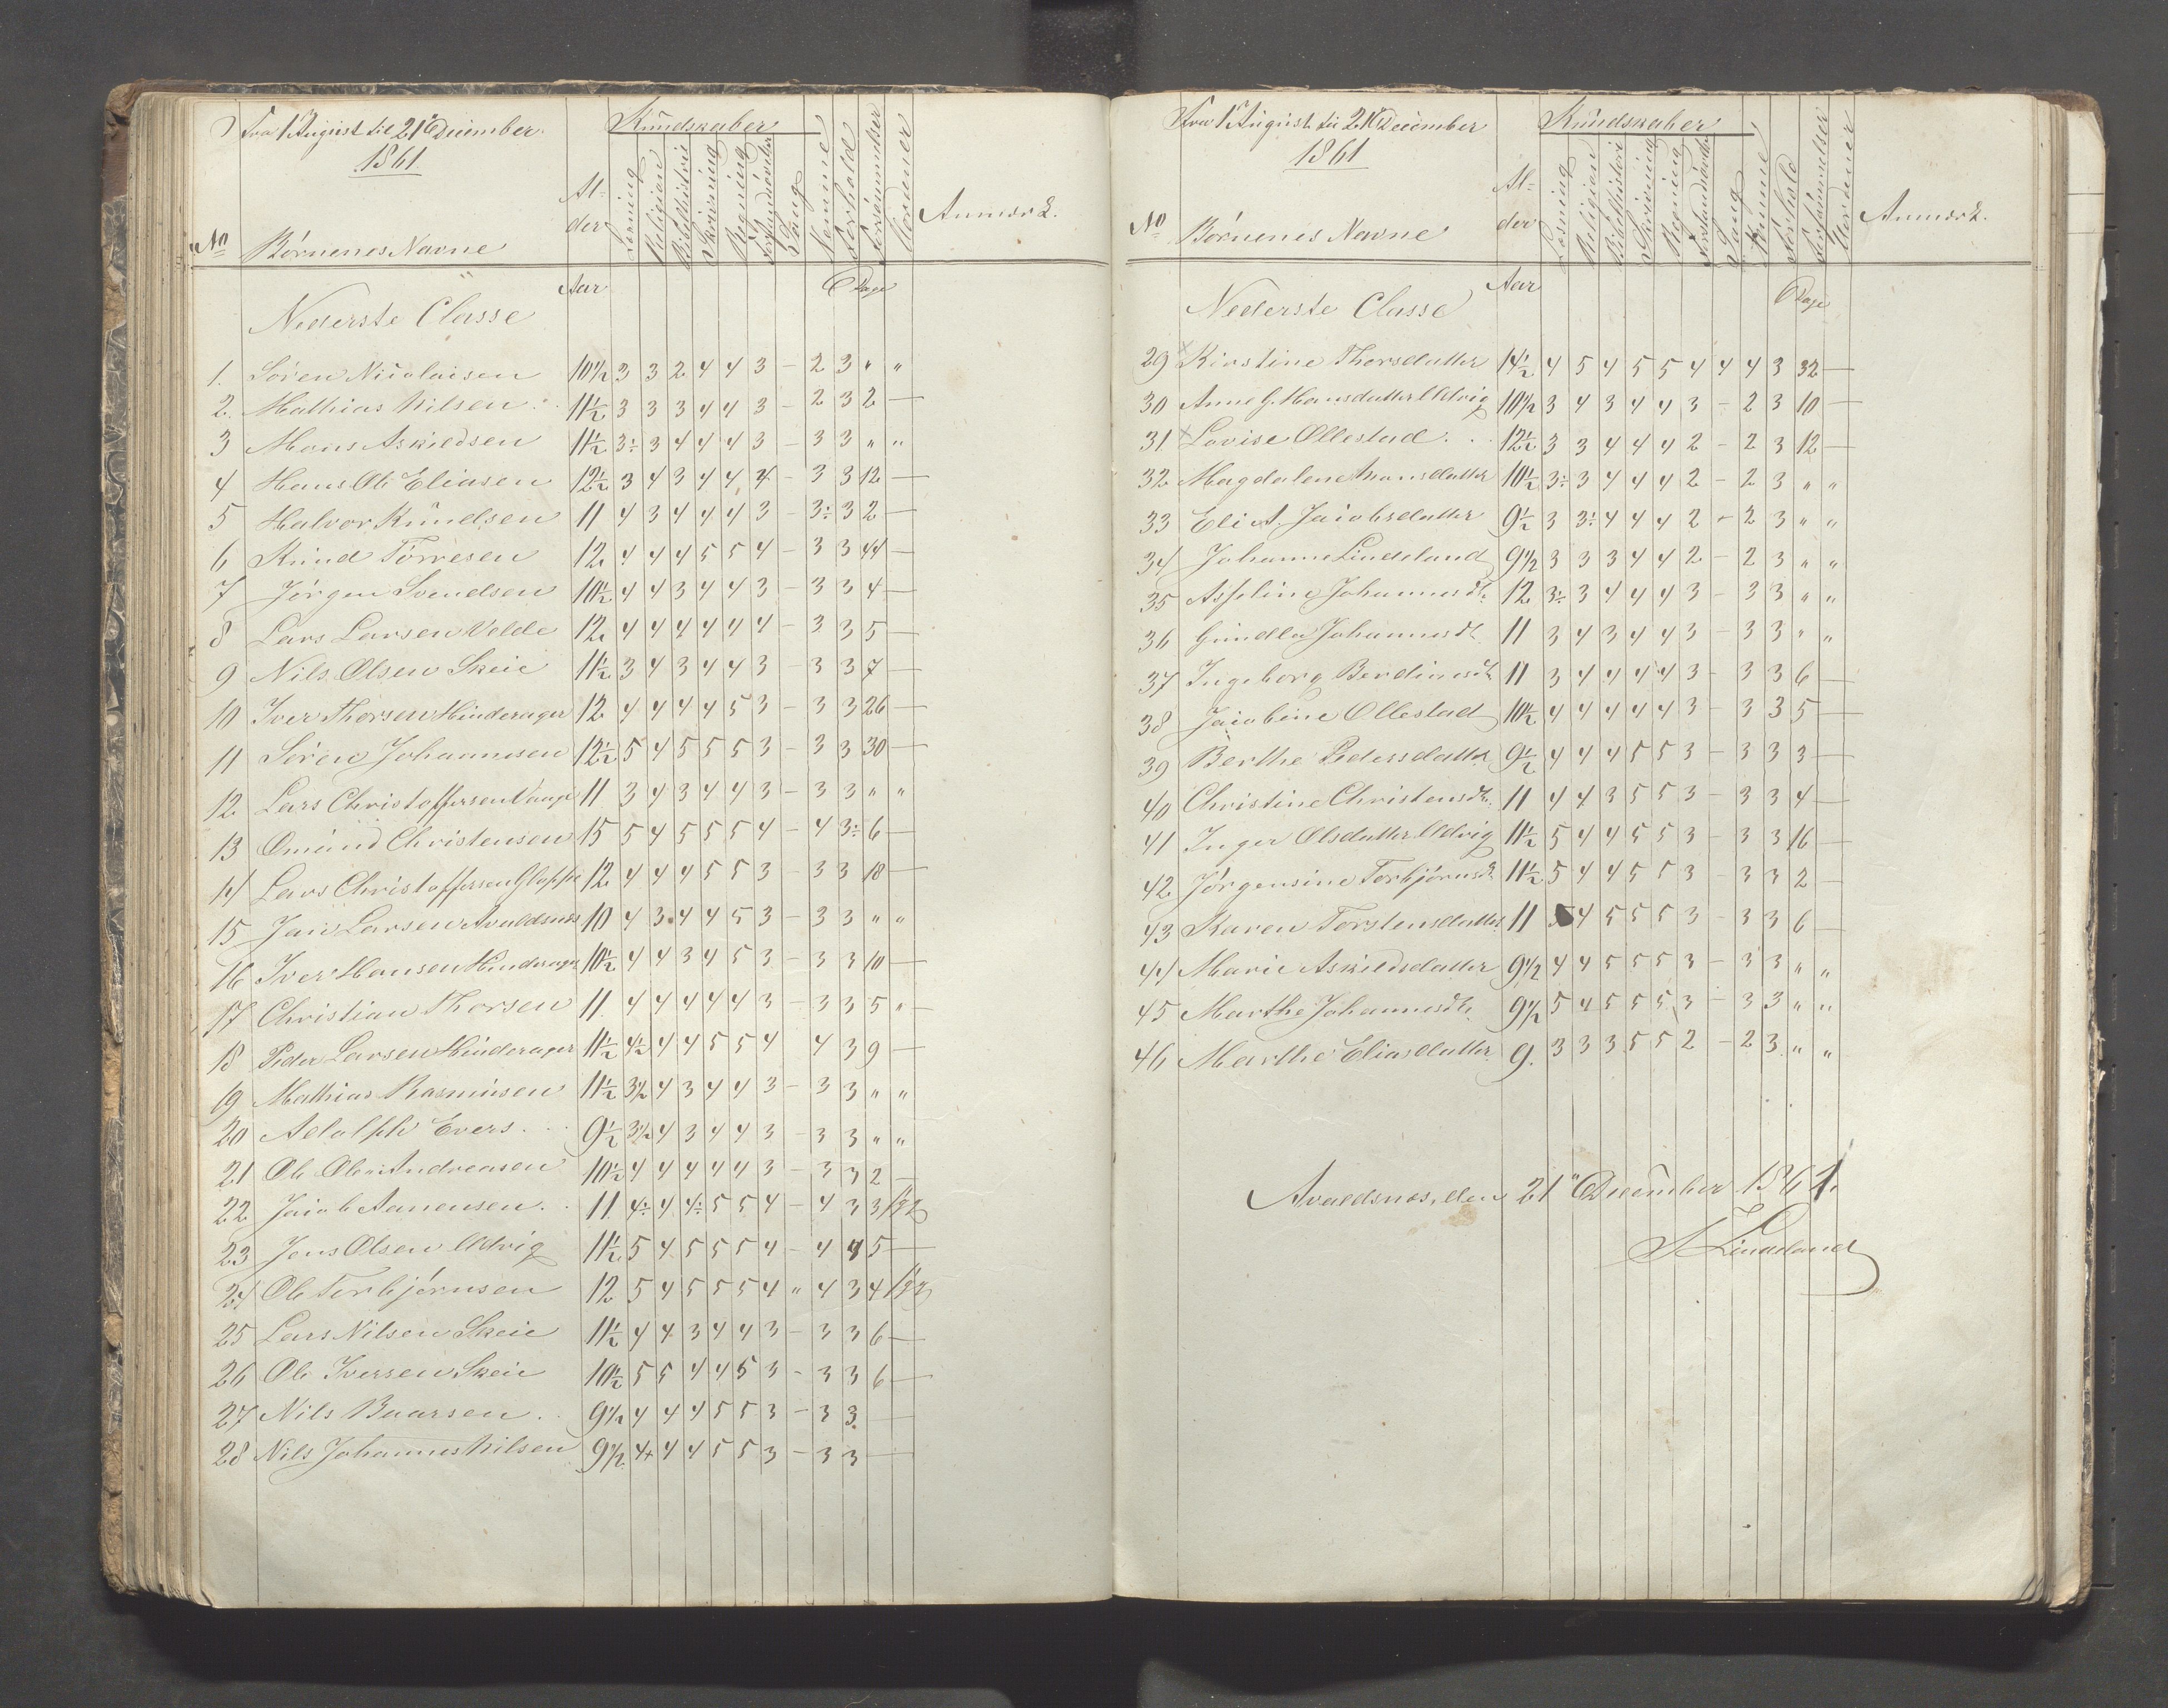 Fra 1 August til 21de December
1861
No Børnenes Navne Al-der Kundskaber Læsning Religion Bibelhistorie Skrivning Regning Forstandsøvelser Sang Nemme Forhold Forsømmelser Anmærk.
Nederste Classe Aar Dage
1. Søren Nicolaisen 10½ 3 3 2 4 4 3 - 2 3 " "
2. Mathias Nilsen 11½ 3 3 3 4 4 3 - 2 3 2 —
3 Mons Askildsen 11½ 3÷ 3 4 4 4 3 - 3 3 " "
4 Hans Ole Eliasen 12½ 3 4 3 4 4 4 - 3 3 12 —
5 Halvor Knudsen 11 4 3 4 4 4 3 - 3÷ 3 2 —
6 Knud Tørresen 12 4 4 4 5 5 4 - 3 3 44 —
7 Jørgen Svendsen 10½ 4 4 3 4 4 3 - 3 3 4 —
8 Lars Larsen Velde 12 4 4 4 4 4 4 - 3 3 5 —
9 Nils Olsen Skeie 11½ 3 4 3 4 4 3 - 3 3 7 —
10 Iver Thorsen Hinderager 12 4 4 4 4 5 3 - 3 3 26 —
11 Søren Johannesen 12½ 5 4 5 5 5 3 - 3 3 30 —
12 Lars Christoffersen Vaage 11 3 4 3 4 4 3 - 3 3 " "
13 Omund Christensen 15 5 4 5 5 5 4 - 4 3÷ 6 —
14 Lars Christoffersen Gloppe 12 4 4 4 5 5 3 - 3 3 18 —
15 Jan Larsen Avaldsnes 10 4 3 4 4 5 3 - 3 3 " "
16 Iver Hansen Hinderager 10½ 4 4 3 4 5 3 - 3 3 10 —
17 Christian Thorsen 11 4 4 4 4 4 3 - 3 3 5 " —
18 Peder Larsen Hinderager 11½ 4½ 4 4 5 5 4 4 3 9 —
19 Mathias Rasmusen 11½ 3½ 4 3 4 4 3 - 3 3 " "
20 Adolph Evers 9½ 3½ 4 3 4 4 3 - 3 3 " "
21 Ole Olai Andreasen 10½ 4 4 4 4 4 3 - 3 3 2 —
22 Jacob Aanensen 11 4÷ 4 4÷ 5 5 4 - 4 3 3
23 Jens Olsen Udvig 11½ 5 4 5 5 5 4 - 4 4 5 —
24 Ole Torbjørnsen 12 5 4 5 5 5 4 " 4 3 4
25 Lars Nilsen Skeie 11½ 4 4 3 4 4 3 - 3 3 6 —
26 Ole Iversen Skeie 10½ 5 5 4 4 5 3 - 3 3 6 —
27 Nils Baarsen 9½ 4 4 4 5 5 3 - 3 3 —
28 Nils Johannes Nilsen 9½ 4 4 4 5 5 3 - 3 3 —
Fra 1 August til 21de December
1861
No Børnenes Navne Al-der Kundskaber Læsning Religion Bibelhistorie Skrivning Regning Forstandsøvelser Sang Nemme Forhold Forsømmelser Anmærk.
Nederste Classe Aar Dage
29 Kirstine Thorsdatter 14½ 4 5 4 5 5 4 4 4 3 32 —
30 Anne G. Hansdatter Udvig 10½ 3 4 3 4 4 3 - 2 3 10 —
31 Lovise Ollestad 12½ 3 3 4 4 4 2 - 2 3 12 —
32 Magdalene Monsdatter 10½ 3÷ 3 4 4 4 2 - 2 3 " "
33 Eli A. Jacobsdatter 9½ 3 3÷ 4 4 4 2 - 2 3 " "
34 Johanne Lindeland 9½ 3 3 3 4 4 2 - 2 3 " "
35 Asseline Johannesdt. 12 3÷ 3 4 4 4 3 - 3 3 " "
36 Gundla Johannesdt. 11 3 4 3 4 4 3 - 3 3 " "
37 Ingeborg Berdinesdt. 11 3 4 4 4 4 3 - 3 3 6 —
38 Jacobine Ollestad 10½ 4 4 4 4 4 3 - 3 3 5 —
39 Berthe Pedersdatter 9½ 4 4 4 5 5 3 - 3 3 3 —
40 Christine Christensdt. 11 4 4 3 5 5 3 - 3 3 4 —
41 Inger Olsdatter Udvig 11½ 5 4 4 5 5 3 - 3 3 16 —
42 Jørgensine Torbjørnsdt. 11½ 5 4 4 5 5 3 - 3 3 2 —
43 Karen Torstensdatter 11 5 4 5 5 5 3 - 3 3 6 —
44 Marie Askildsdatter 9½ 4 4 5 5 5 3 - 3 3 " "
45 Marthe Johannesdt. 9½ 5 4 5 5 5 3 - 3 3 " "
46 Marthe Eliasdatter 9. 3 3 3 5 5 2 - 2 3 " "
Avaldsnes, den 21de December 1861.
Lindeland